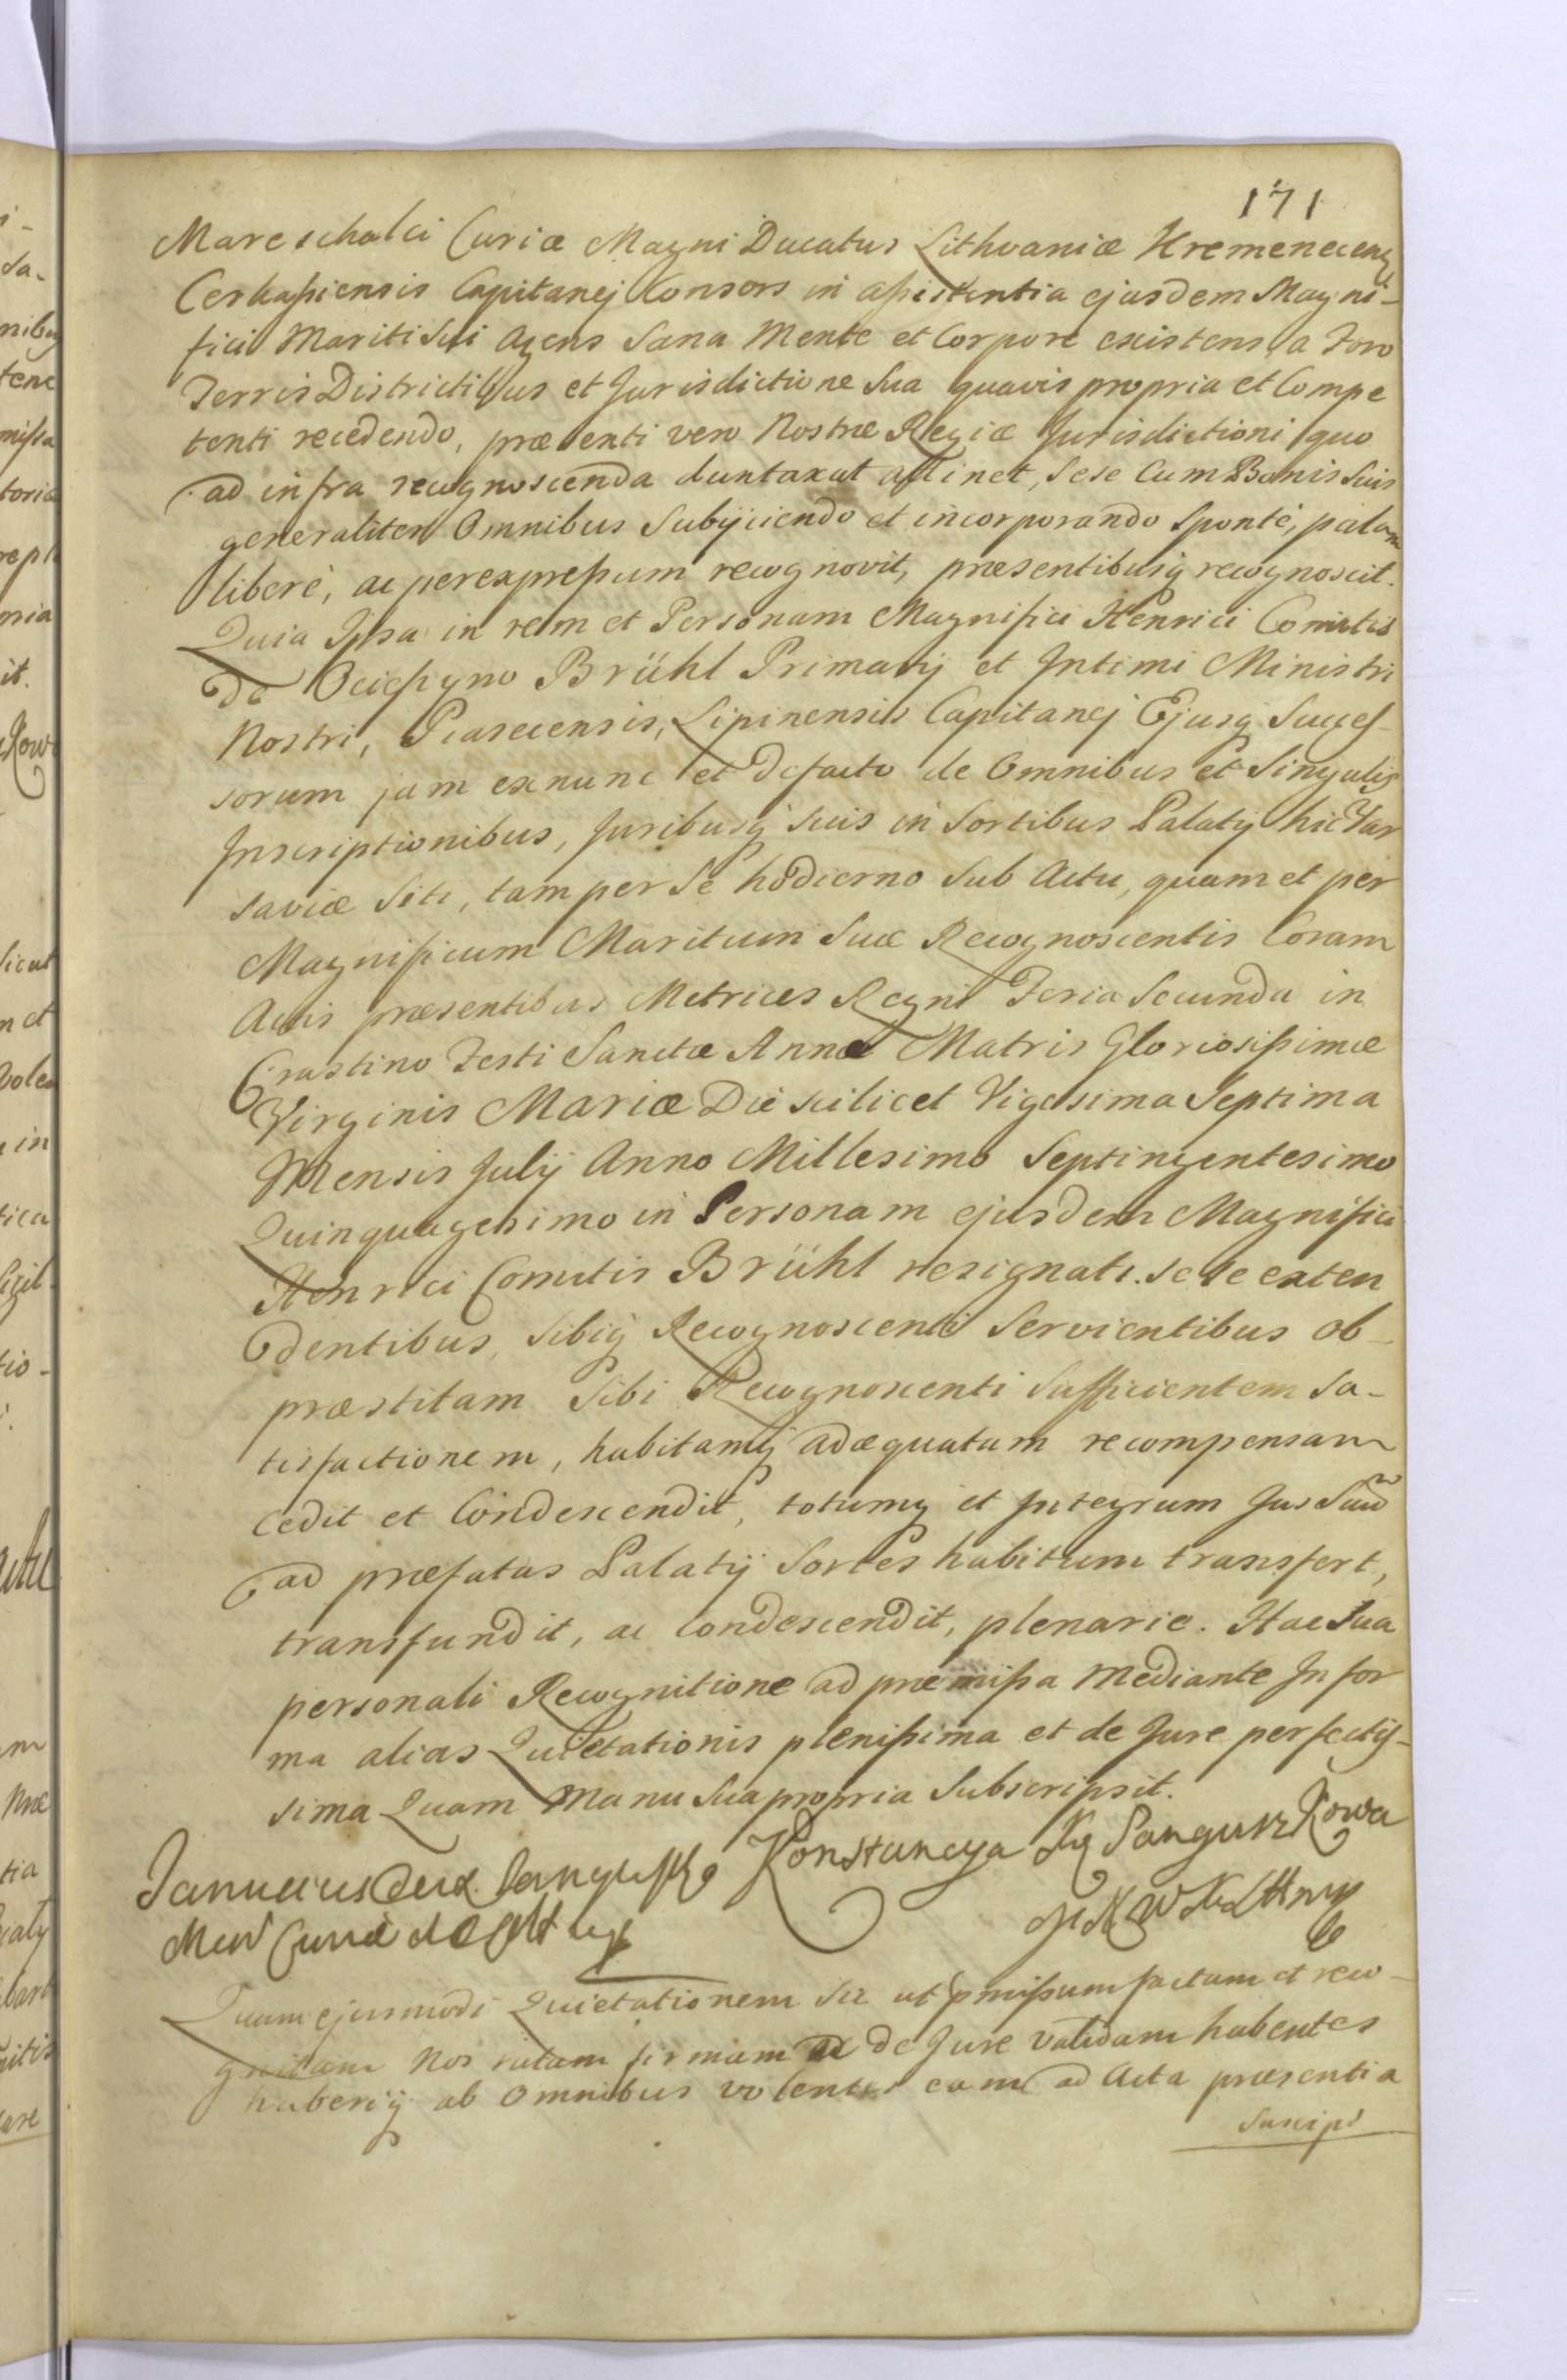 171
Mareschalci Curiæ Magni Ducatus Lithvaniæ Kremenecens
Cerkaßiensis Capitanej Consors in aßistentia ejusdem Magni-
fici Mariti Sui agens Sana Mente et Corpore existens, a Foro
Terris Districtibus et Jurisdictione Sua quavis propria et Compe
tenti recedendo, præsenti vero Nostræ Regiæ Jurisdictioni quo
ad infra recognoscenda duntaxat attinet, Sese Cum Bonis Suis
generaliter Omnibus Subijciendo et incorporando Sponte, palam
libere, ac perexpreßum recognovit, præsentibusq recognoscit.
Quia Ipsa in rem et Personam Magnifici Henrici Comitis
De Ocieszyno Brühl Primarij et Intimi Ministri
Nostri, Piasecensis, Lipinensis Capitanej Ejusq Succes-
sorum jam exnunc et Defacto de Omnibus et Singulis
Inscriptionibus, Juribusq suis in Sortibus Palatij hic Var
saviæ Siti, tam per Se hodierno Sub Actu, quam et per
Magnificum Maritum Suæ Recognoscentis Coram
Actis præsentibus Metrices Regni Feria Secunda in
Crastino Festi Sanctæ Annæ Matris Gloriosißimæ
Virginis Mariæ Die scilicet Vigesima Septima
Mensis Julij Anno Millesimo Septingentesimo
Quinquagesimo in Personam ejusdem Magnifici
Henrici Comitis Brühl resignatis. Sese exten
dentibus, Sibiq Recognoscenti Servientibus ob
præstitam Sibi Recognoscenti Sufficientem Sa-
tisfactionem, habitamq adæquatam recompensam
cedit et Condescendit, totumq et Integrum Jus Suũ
ad præfatas Palatij Sortes habitum transfert,
transfundit, ac Condescendit, plenarie. Hac Sua
personali Recognitione ad præmißa Mediante In for
ma alias Quietationis plenißima et de Jure perfectis-
sima Quam Manu Sua propria Subscripsit.
Konstancya Xg Sanguszkowa
Quam ejusmodi Quietationem Sic ut pmißum factam et reco-
gnitam Nos ratam firmam ac De Jure Validam habentes
haberiq ab Omnibus volentes eam ad Acta præsentia
Suscipi